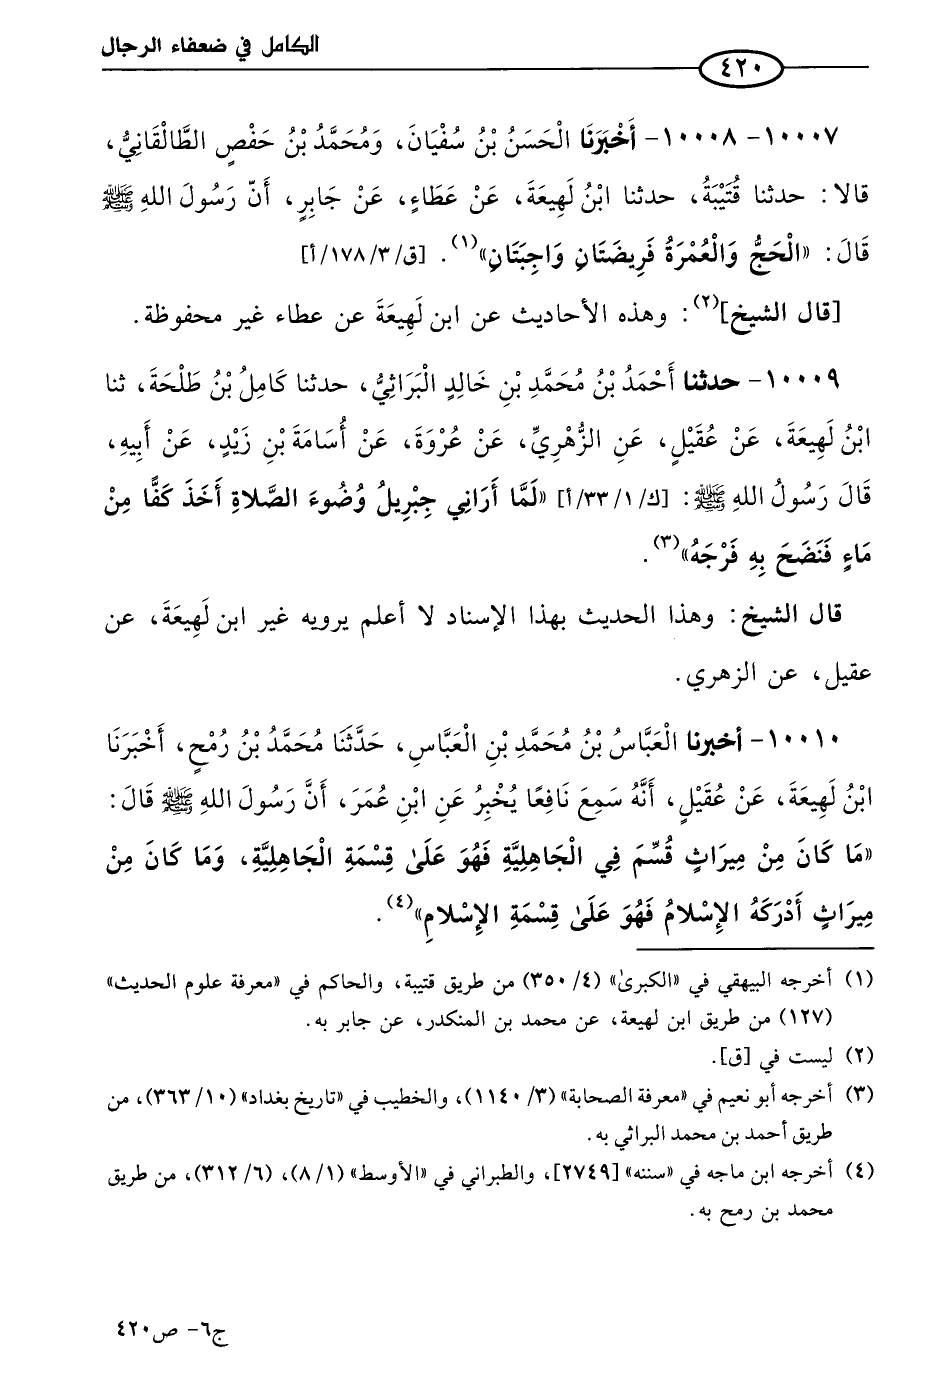 الكامل في ضعفاء الرجال
٤٢٠
١٠٠٠٧- ١٠٠٠٨- أَخْبَرَنَا الْحَسَنُ بْنُ سُفْيَانَ، وَمُحَمَّدُ بْنُ حَفْصٍ الطَّالْقَانِيُّ،
قالا: حدثنا قُتَيْبَةُ، حدثنا ابْنُ لَهِيعَةَ، عَنْ عَطَاءٍ، عَنْ جَابِرٍ، أَنّ رَسُولَ اللهِ ﷺ
قَالَ: «الْحَجُّ وَالْعُمْرَةُ فَرِيضَتَانِ وَاجِبَتَانِ»(١). [ق/٣/١٧٨/أ]
[قال الشيخ](٢): وهذه الأحاديث عن ابن لَهِيعَةَ عن عطاء غير محفوظة.
١٠٠٠٩- حدثنا أَحْمَدُ بْنُ مُحَمَّدِ بْنِ خَالِدٍ الْبَرَاثِيُّ، حدثنا كَامِلُ بْنُ طَلْحَةَ، ثنا
ابْنُ لَهِيعَةَ، عَنْ عُقَيْلٍ، عَنِ الزُّهْرِيِّ، عَنْ عُرْوَةَ، عَنْ أُسَامَةَ بْنِ زَيْدٍ، عَنْ أَبِيهِ،
قَالَ رَسُولُ اللهِ ﷺ: [ك/١/٣٣/أ] «لَمَّا أَرَانِي جِبْرِيلُ وُضُوءَ الصَّلاةِ أَخَذَ كَفًّا مِنْ
مَاءٍ فَنَضَحَ بِهِ فَرْجَهُ»(٣).
قال الشيخ: وهذا الحديث بهذا الإسناد لا أعلم يرويه غير ابن لَهِيعَةَ، عن
عقيل، عن الزهري.
١٠٠١٠- أخبرنا الْعَبَّاسُ بْنُ مُحَمَّدِ بْنِ الْعَبَّاسِ، حَدَّثَنَا مُحَمَّدُ بْنُ رُمْحٍ، أَخْبَرَنَا
ابْنُ لَهِيعَةَ، عَنْ عُقَيْلٍ، أَنَّهُ سَمِعَ نَافِعًا يُخْبِرُ عَنِ ابْنِ عُمَرَ، أَنَّ رَسُولَ اللهِ ﷺ قَالَ:
«مَا كَانَ مِنْ مِيرَاثٍ قُسِّمَ فِي الْجَاهِلِيَّةِ فَهُوَ عَلَىٰ قِسْمَةِ الْجَاهِلِيَّةِ، وَمَا كَانَ مِنْ
مِيرَاثٍ أَدْرَكَهُ الإِسْلامُ فَهُوَ عَلَىٰ قِسْمَةِ الإِسْلامِ»(٤).
(١) أخرجه البيهقي في «الكبرىٰ» (٤/ ٣٥٠) من طريق قتيبة، والحاكم في «معرفة علوم الحديث»
(١٢٧) من طريق ابن لهيعة، عن محمد بن المنكدر، عن جابر به.
(٢) ليست في [ق].
(٣) أخرجه أبو نعيم في «معرفة الصحابة» (٣/ ١١٤٠)، والخطيب في «تاريخ بغداد» (١٠/ ٣٦٣)، من
طريق أحمد بن محمد البراثي به.
(٤) أخرجه ابن ماجه في «سننه» [٢٧٤٩]، والطبراني في «الأوسط» (١/ ٨)، (٦/ ٣١٢)، من طريق
محمد بن رمح به.
ج٦- ص٤٢٠